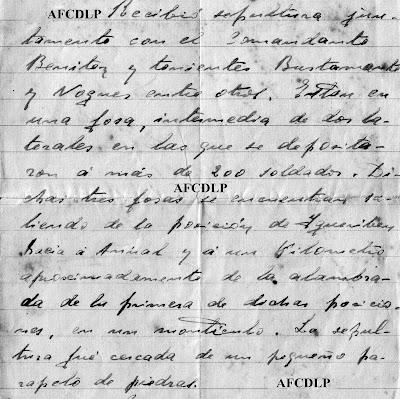 AFCDLP Recibió sepultura jun-
tamente con el Comandante
Benitez y tenientes Bustamante
y Nogues entre otros. Estan en
una fosa, intermedia de dos la-
terales en las que se deposita-
ron á más de 200 soldados. Di-
AFCDLP
chas tres fosas se encuentran sa-
liendo de la posición de Igueriben
hacia á Annual y á un Kilometro
aproximadamente de la alambra-
da de la primera de dichas posicio-
nes, en un monticulo. La sepul-
tura fué cercada de un pequeño pa-
rapeto de piedras.
AFCDLP